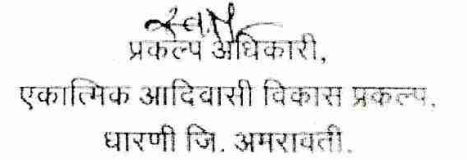 प्रकल्प अधिकारी,
एकात्मिक आदिवासी विकास प्रकल्प,
धारणी जि. अमरावती.